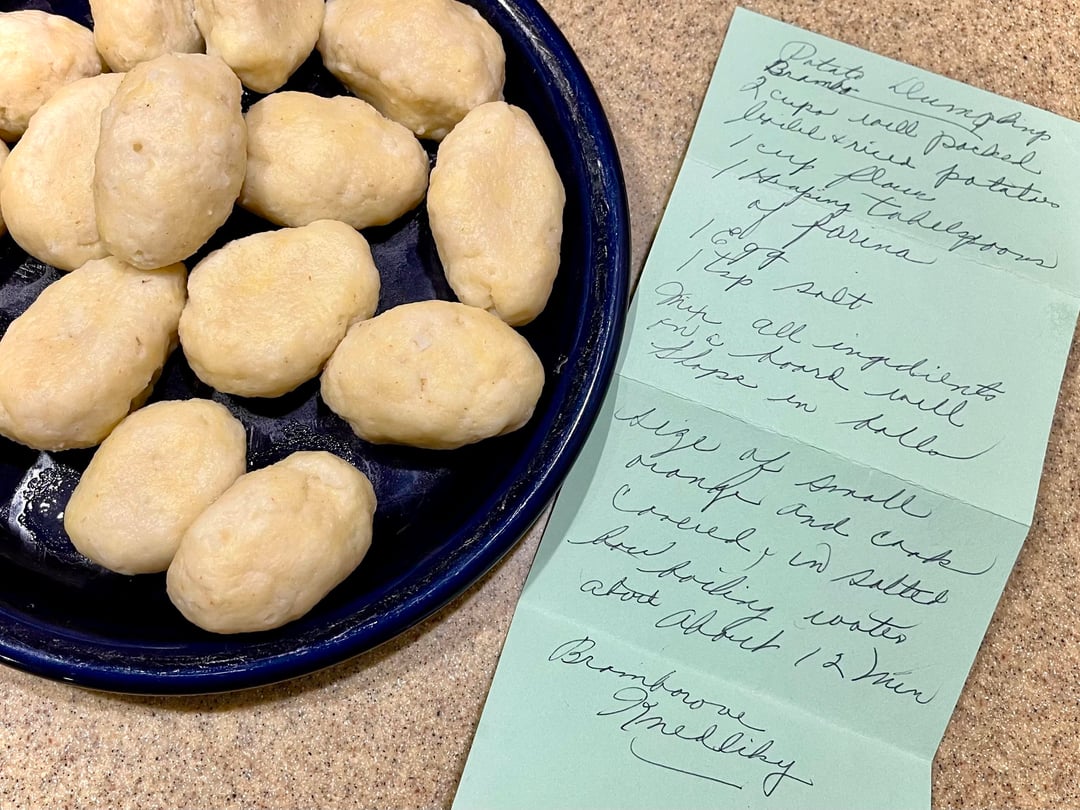 Potato Dumplings
Bramb
2 cups well packed
boiled & riced potatoes
1 cup flour
1 Heaping tablespoons
of farina
1 Egg
1 tsp salt
Mix all ingredients
on a board well
Shape in balls
size of small
orange and cook
Covered, in salted
low boiling water
about About 12 min
Bramborove
Knedliky